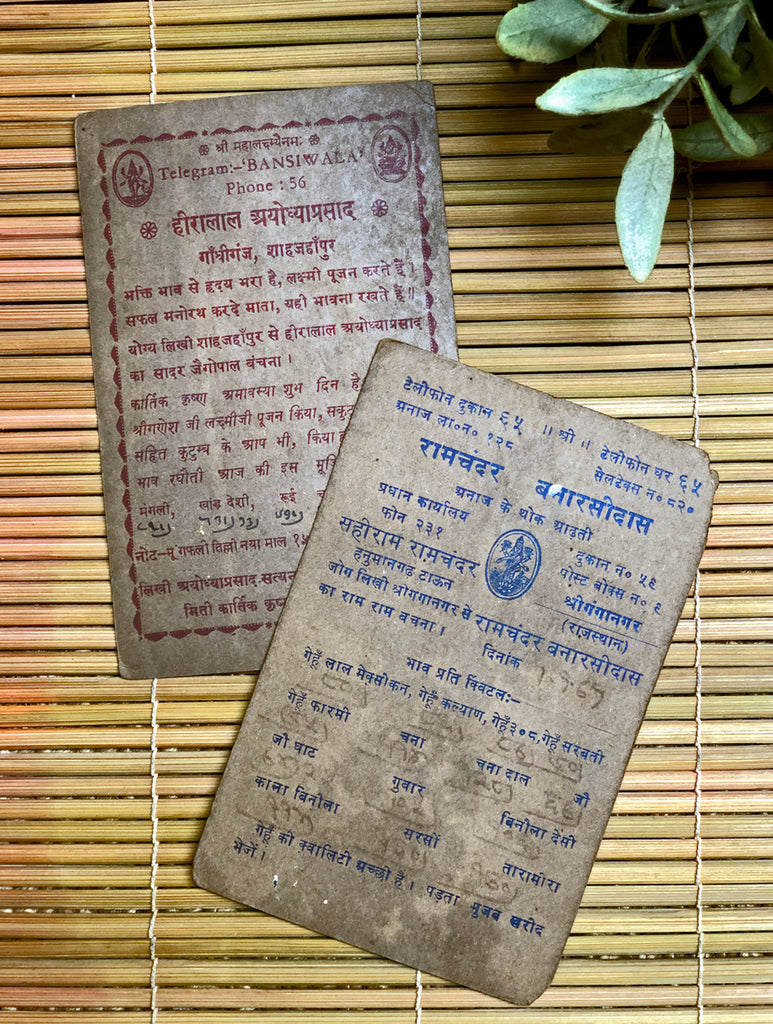 श्री महालक्ष्म्यैनमः
Telegram:-'BANSIWALA'
Phone : 56
हीरालाल अयोध्याप्रसाद
गाँधीगंज, शाहजहाँपुर
भक्ति भाव से हृदय भरा है, लक्ष्मी पूजन करते हैं।
सफल मनोरथ करदे माता, यही भावना रखते हैं॥
योग्य लिखी शाहजहाँपुर से हीरालाल अयोध्याप्रसाद
का सादर जैगोपाल बंचना।
कार्तिक कृष्ण अमावस्या शुभ दिन है
श्रीगणेश जी लक्ष्मीजी पूजन किया,
सहित कुटुम्ब के आप भी, किया
भाव रघौती आज की इस
मंगली, खांड देशी, रूई
नोट:-मू गफली तिल्ली नया माल
लिखी अयोध्याप्रसाद
मिती कार्तिक
टेलीफोन दुकान ६५ ॥ श्री ॥ टेलीफोन घर ६५
अनाज ला०न० १२८ सेलटेक्स न० ८२०
रामचंदर बनारसीदास
अनाज के थोक आढ़ती
प्रधान कार्यालय
फोन २३१
सहीराम रामचंदर
हनुमानगढ़ टाऊन
दुकान न० ५९
पोस्ट बोक्स न० ९
श्रीगंगानगर
(राजस्थान)
जोग लिखी श्रीगंगानगर से रामचंदर बनारसीदास
का राम राम बचना।
दिनांक
भाव प्रति क्विंटल:-
गेहूँ लाल मेक्सीकन, गेहूँ कल्याण, गेहूँ ३०८, गेहूँ सरबती
गेहूँ फारमी चना चना दाल जौ
जौ घाट गुवार बिनौला देसी
काला बिनौला सरसों तारामीरा
गेहूँ की क्वालिटी अच्छी है। पड़ता मुजब खरीद
भेजें।